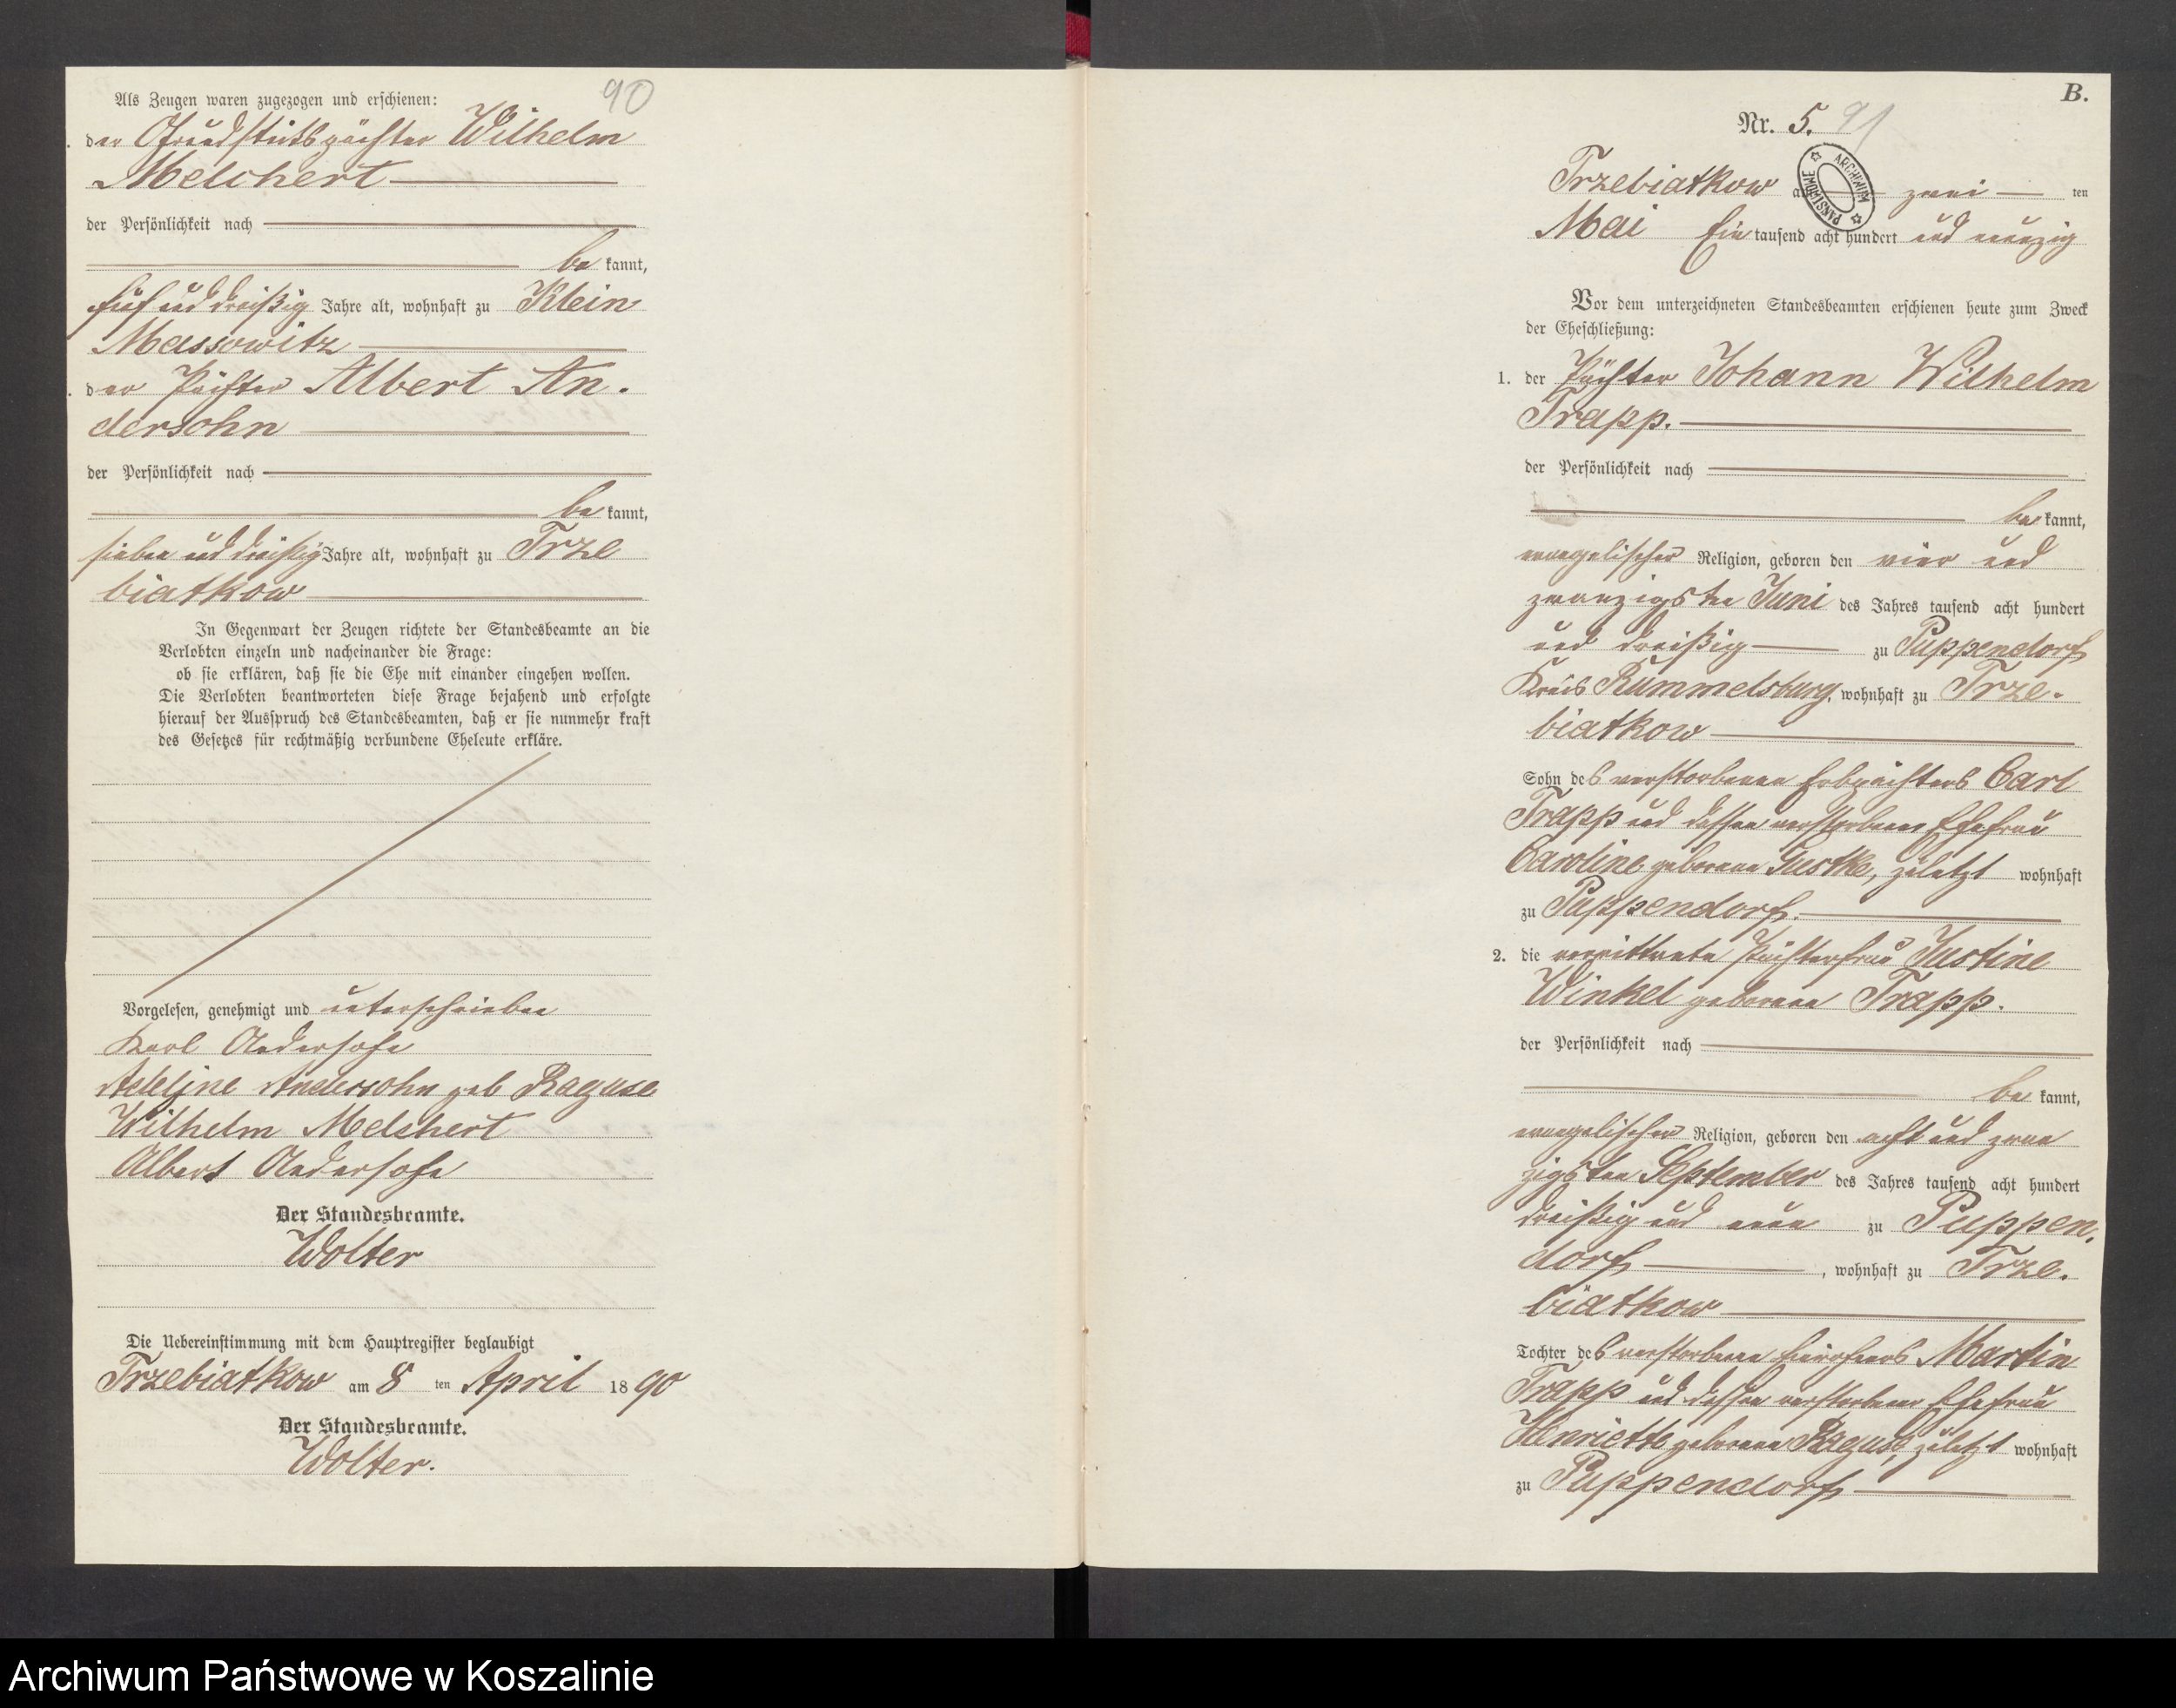 90
Als Zeugen waren zugezogen und erschienen:
der Grundstückspächter Wilhelm
Melchert
der Persönlichkeit nach
be kannt,
fünf und dreißig Jahre alt, wohnhaft zu Klein
Massowitz
der Pächter Albert An-
dersohn
der Persönlichkeit nach
be kannt,
sieben und dreißig Jahre alt, wohnhaft zu Trze
biatkow
In Gegenwart der Zeugen richtete der Standesbeamte an die
Verlobten einzeln und nacheinander die Frage:
ob sie erklären, daß sie die Ehe mit einander eingehen wollen.
Die Verlobten beantworteten diese Frage bejahend und erfolgte
hierauf der Ausspruch des Standesbeamten, daß er sie nunmehr kraft
des Gesetzes für rechtmäßig verbundene Eheleute erkläre.
Vorgelesen, genehmigt und unterschrieben
Karl Andersohn
Adeline Andersohn geb Raguse
Wilhelm Melchert
Albert Andersohn
Der Standesbeamte.
Wolter
Die Uebereinstimmung mit dem Hauptregister beglaubigt
Trzebiatkow am 8 ten April 18 90
Der Standesbeamte.
Wolter.
B.
Nr. 5. 91
ARCHIWUM PAŃSTWOWE
Trzebiatkow am zwei ten
Mai Ein tausend acht hundert und neunzig
Vor dem unterzeichneten Standesbeamten erschienen heute zum Zweck
der Eheschließung:
1. der Pächter Johann Wilhelm
Trapp.
der Persönlichkeit nach
be kannt,
evangelischer Religion, geboren den vier und
zwanzigsten Juni des Jahres tausend acht hundert
und dreißig zu Puppendorf
Kreis Rummelsburg, wohnhaft zu Trze-
biatkow
Sohn des verstorbenen Erbpächters Carl
Trapp und dessen verstorbenen Ehefrau
Caroline geborene Gustke, zuletzt wohnhaft
zu Puppendorf.
2. die verwittwete Pächterfrau Justine
Winkel geborene Trapp.
der Persönlichkeit nach
be kannt,
evangelischer Religion, geboren den acht und zwan
zigsten September des Jahres tausend acht hundert
dreißig und neun zu Puppen-
dorf, wohnhaft zu Trze-
biatkow
Tochter des verstorbenen Eigners Martin
Trapp und dessen verstorbenen Ehefrau
Henriette geborene Raguse, zuletzt wohnhaft
zu Puppendorf
Archiwum Państwowe w Koszalinie